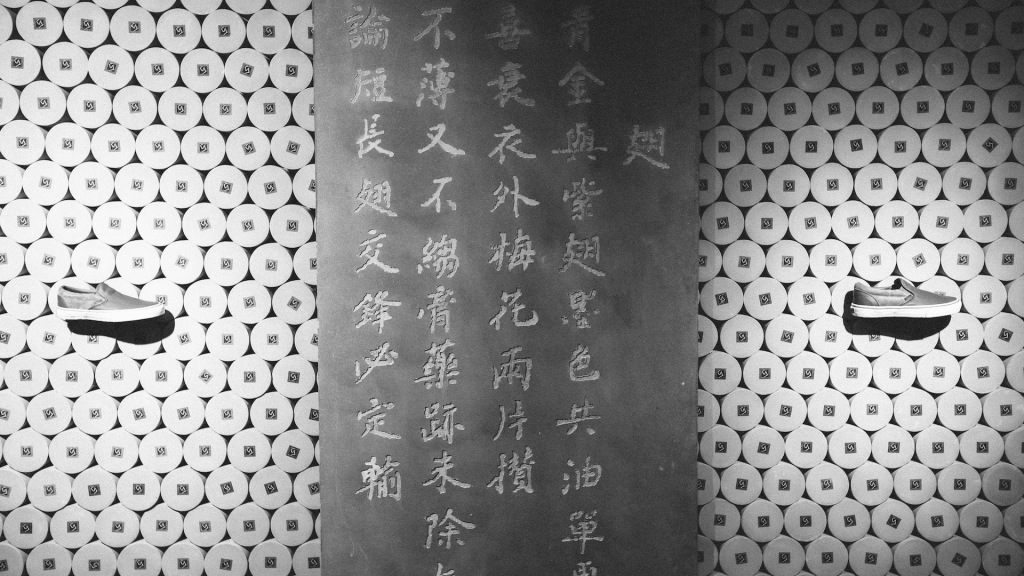 翅
青金與紫翅墨色共油單
喜衰衣外梅花兩片攢
不薄又不縐膏藥跡未除
論短長翅交鋒必定輸